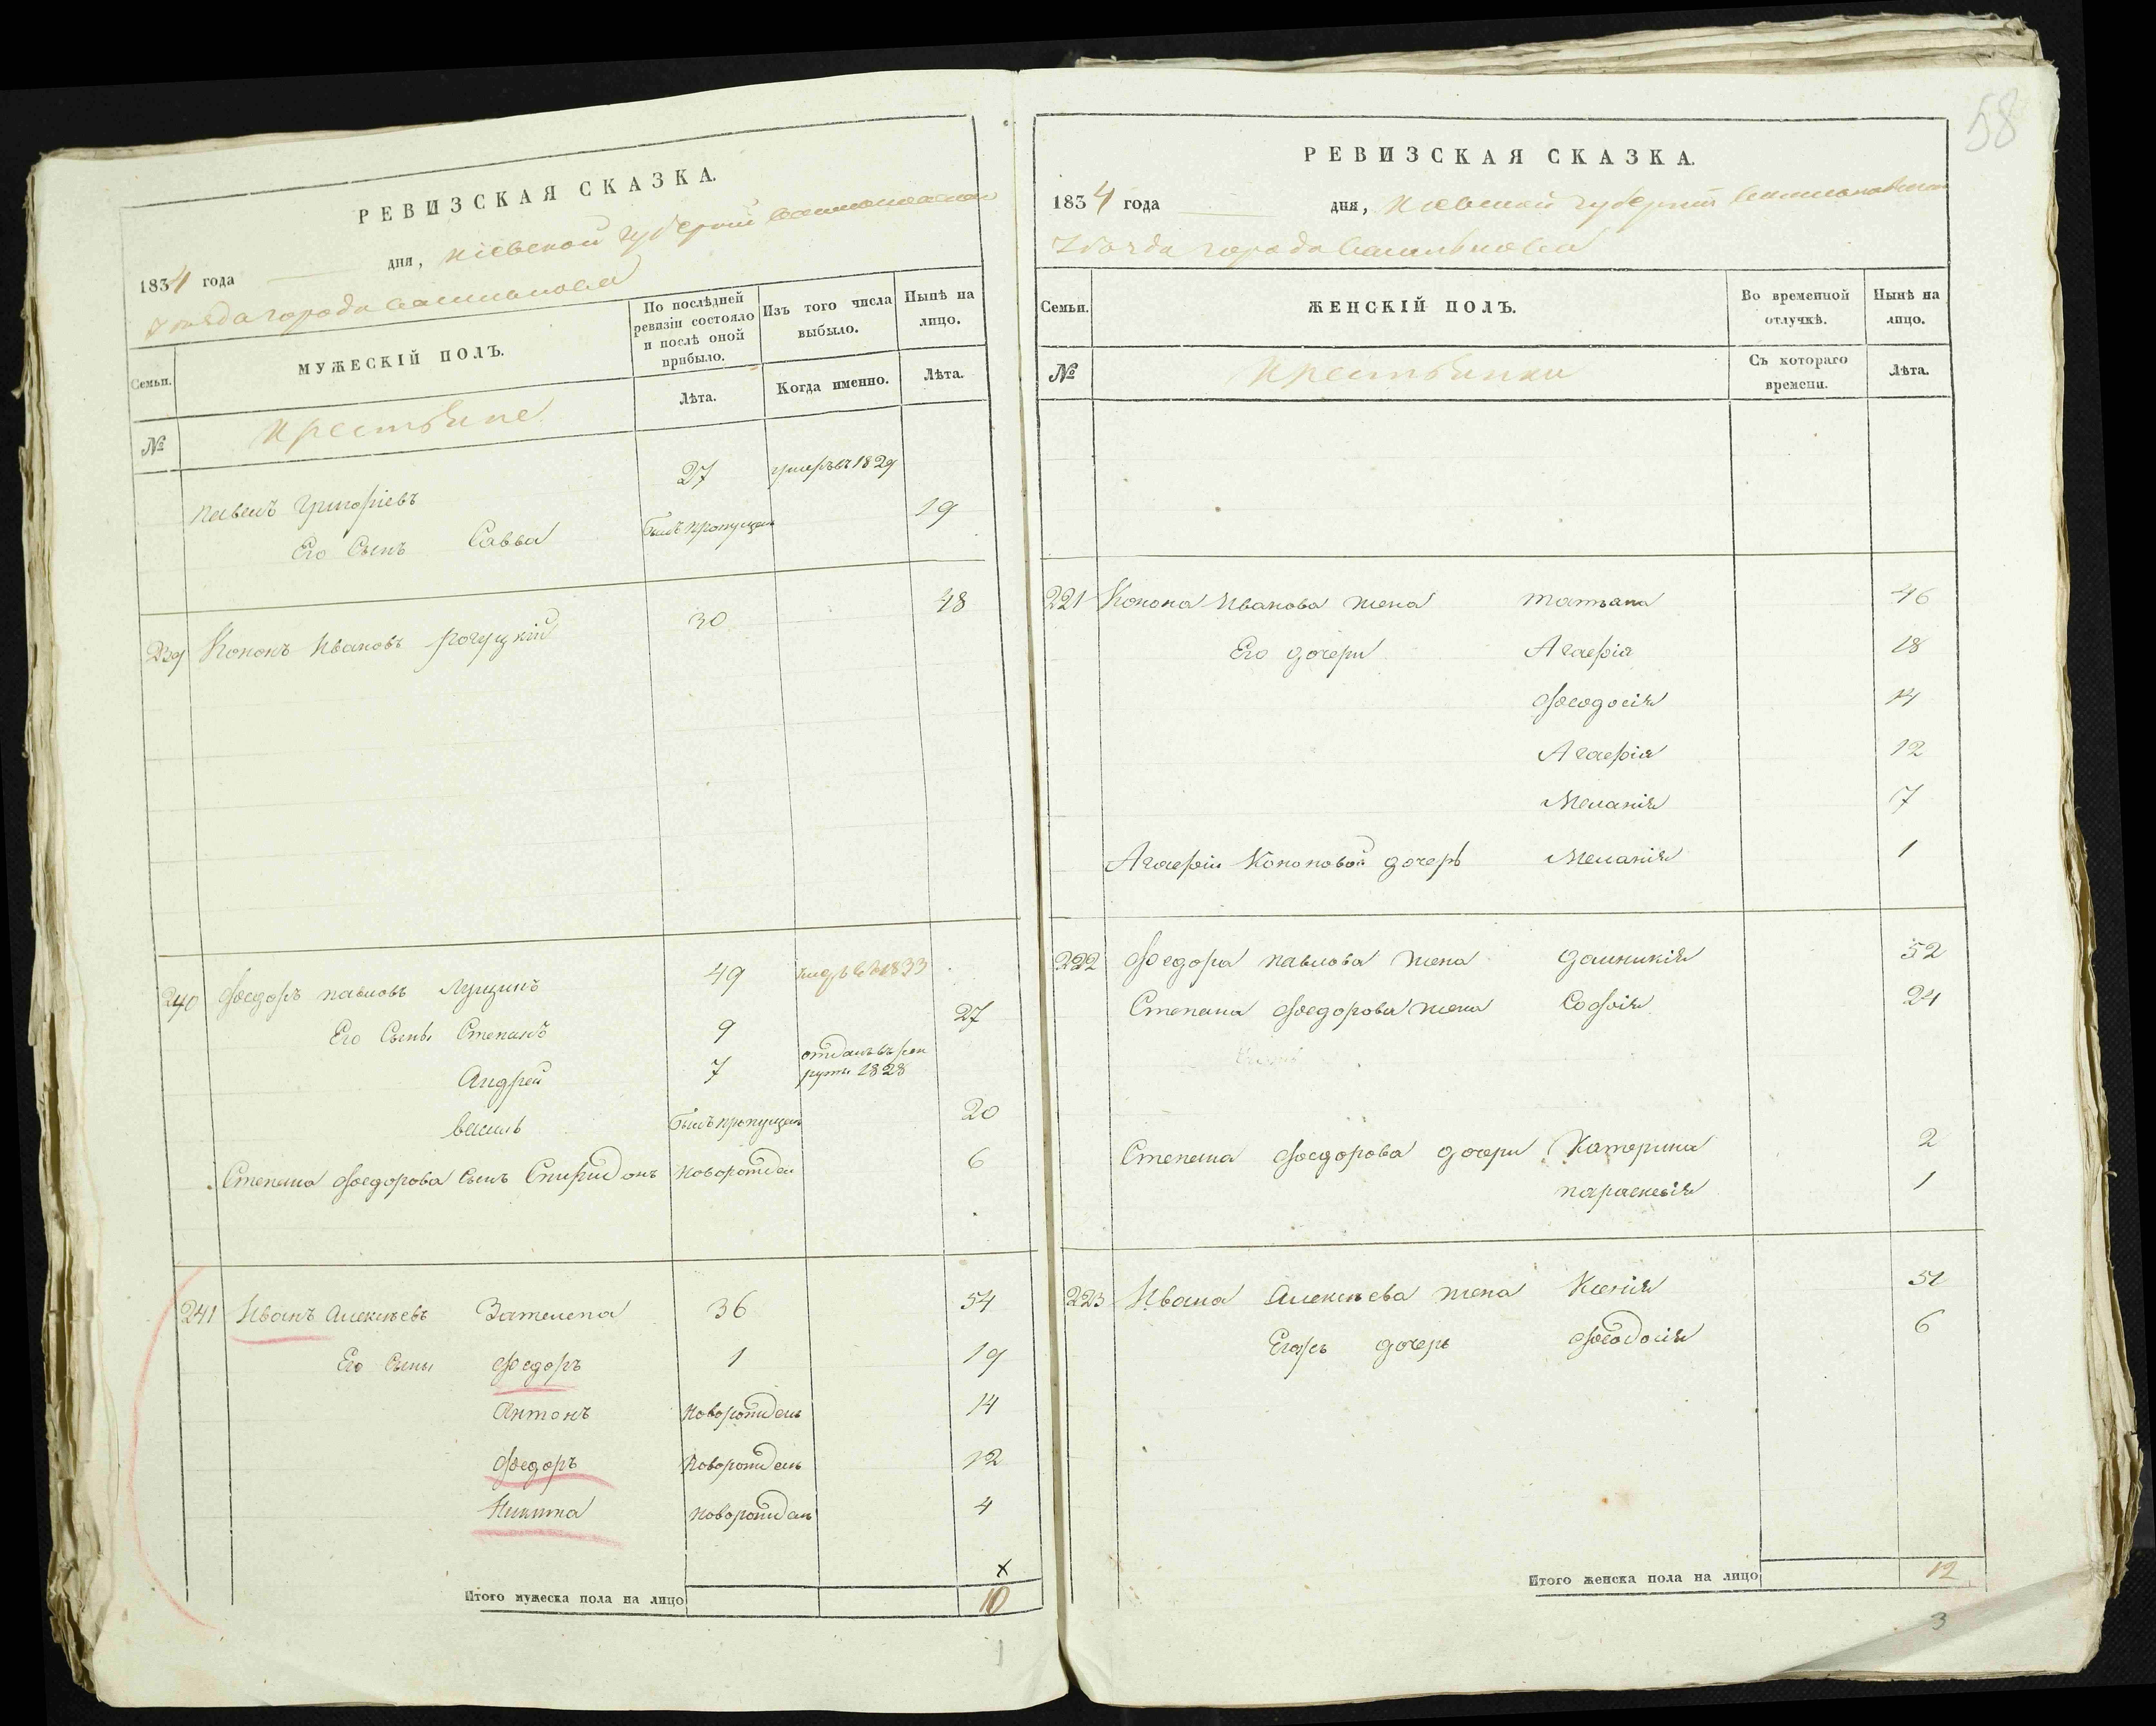 58
РЕВИЗСКАЯ СКАЗКА.
1834 года дня, Кіевской губерніи Васильковскаго
уѣзда города Василькова
Семьи.
МУЖЕСКІЙ ПОЛЪ.
По послѣдней ревизіи состояло и послѣ оной прибыло.
Изъ того числа выбыло.
Нынѣ на лицо.
№
Крестьяне
Лѣта.
Когда именно.
Лѣта.
Павелъ Григоріевъ 27 умеръ въ 1829
Его Сынъ Савва былъ пропущенъ 19
239 Кононъ Ивановъ 30 48
240 Феодоръ Павловъ Лущинъ 49 1833
Его Сыны Степанъ 9 27
Андрей 7 отданъ въ рек
руты 1828
Василь былъ пропущенъ 20
Степана Феодорова Сынъ Спиридонъ новорожден 6
241 Иванъ Алексѣевъ Зателепа 36 54
Его Сыны Феодоръ 1 19
Антонъ Новорожденъ 14
Феодоръ Новорожденъ 12
Никита новорожденъ 4
х
Итого мужеска пола на лицо 10
1
РЕВИЗСКАЯ СКАЗКА.
1834 года дня, Кіевской губерніи Васильковскаго
уѣзда города Василькова
Семьи.
ЖЕНСКІЙ ПОЛЪ.
Во временной отлучкѣ.
Нынѣ на лицо.
№
Крестьянки
Съ котораго времени.
Лѣта.
221 Конона Иванова жена Татьана 46
Его дочери Агафіа 18
Феодосія 14
Агафія 12
Меланія 7
Агафіи Кононовой дочерь Меланія 1
222 Феодора Павлова жена Домникія 52
Степана Феодорова жена Софія 24
Степана Феодорова дочери Катерина 2
Параскевія 1
223 Ивана Алексѣева жена Ксенія 51
дочерь Феодосія 6
Итого женска пола на лицо 12
3